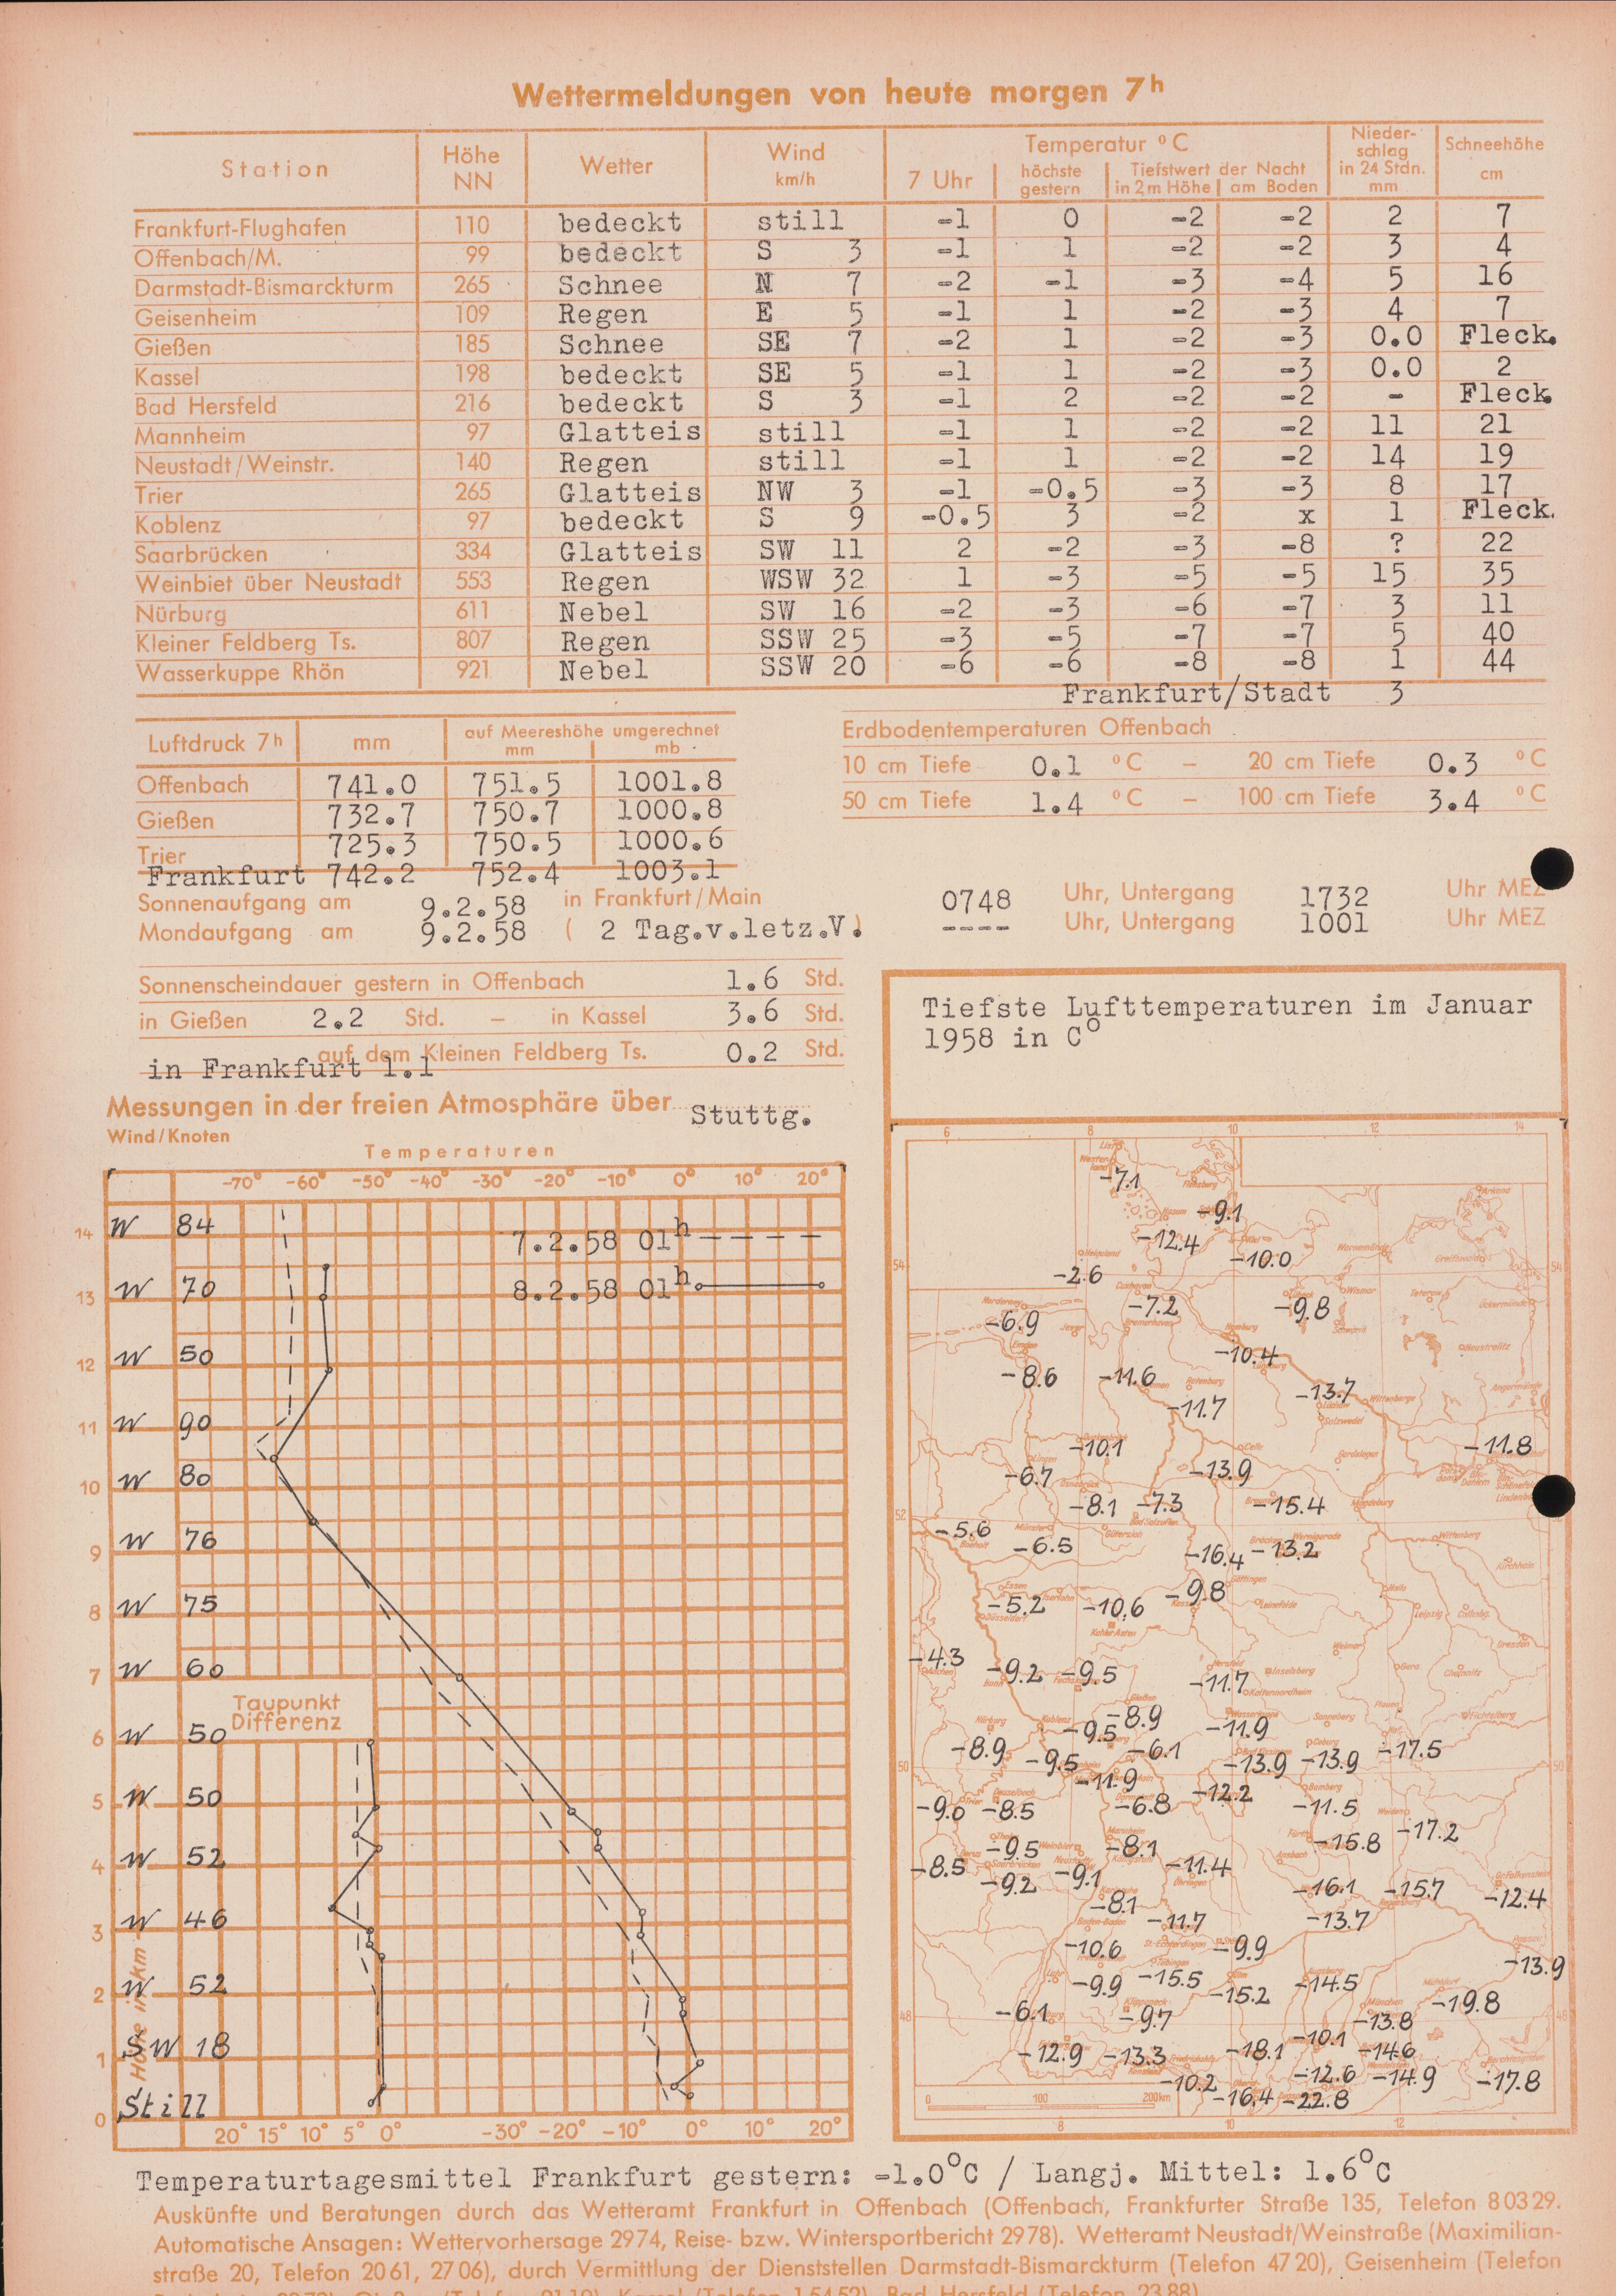 Wettermeldungen von heute morgen 7h
Station Höhe NN Wetter Wind km/h Temperatur °C Niederschlag in 24 Stdn. mm Schneehöhe cm
7 Uhr höchste gestern Tiefstwert der Nacht in 2 m Höhe am Boden
Frankfurt-Flughafen 110 bedeckt still -1 0 -2 -2 2 7
Offenbach/M. 99 bedeckt S 3 -1 1 -2 -2 3 4
Darmstadt-Bismarckturm 265 Schnee N 7 -2 -1 -3 -4 5 16
Geisenheim 109 Regen E 5 -1 1 -2 -3 4 7
Gießen 185 Schnee SE 7 -2 1 -2 -3 0.0 Fleck.
Kassel 198 bedeckt SE 5 -1 1 -2 -3 0.0 2
Bad Hersfeld 216 bedeckt S 3 -1 2 -2 -2 - Fleck.
Mannheim 97 Glatteis still -1 1 -2 -2 11 21
Neustadt/Weinstr. 140 Regen still -1 1 -2 -2 14 19
Trier 265 Glatteis NW 3 -1 -0.5 -3 -3 8 17
Koblenz 97 bedeckt S 9 -0.5 3 -2 x 1 Fleck.
Saarbrücken 334 Glatteis SW 11 2 -2 -3 -8 ? 22
Weinbiet über Neustadt 553 Regen WSW 32 1 -3 -5 -5 15 35
Nürburg 611 Nebel SW 16 -2 -3 -6 -7 3 11
Kleiner Feldberg Ts. 807 Regen SSW 25 -3 -5 -7 -7 5 40
Wasserkuppe Rhön 921 Nebel SSW 20 -6 -6 -8 -8 1 44
Frankfurt/Stadt 3
Luftdruck 7h mm auf Meereshöhe umgerechnet mm mb
Offenbach 741.0 751.5 1001.8
Gießen 732.7 750.7 1000.8
Trier 725.3 750.5 1000.6
Frankfurt 742.2 752.4 1003.1
Erdbodentemperaturen Offenbach
10 cm Tiefe 0.1 °C – 20 cm Tiefe 0.3 °C
50 cm Tiefe 1.4 °C – 100 cm Tiefe 3.4 °C
Sonnenaufgang am 9.2.58 in Frankfurt/Main 0748 Uhr, Untergang 1732 Uhr MEZ
Mondaufgang am 9.2.58 ( 2 Tag.v.letz.V.) ---- Uhr, Untergang 1001 Uhr MEZ
Sonnenscheindauer gestern in Offenbach 1.6 Std.
in Gießen 2.2 Std. – in Kassel 3.6 Std.
auf dem Kleinen Feldberg Ts. 0.2 Std.
in Frankfurt 1.1
Messungen in der freien Atmosphäre über Stuttg.
Wind/Knoten
Temperaturen
-70° -60° -50° -40° -30° -20° -10° 0° 10° 20°
14 W 84
7.2.58 01h
13 W 70
8.2.58 01h
12 W 50
11 W 90
10 W 80
9 W 76
8 W 75
7 W 60
Taupunkt
Differenz
6 W 50
5 W 50
4 W 52
3 W 46
2 W 52
1 SW 18
0 Still
Höhe in km
20° 15° 10° 5° 0° -30° -20° -10° 0° 10° 20°
Tiefste Lufttemperaturen im Januar
1958 in C°
6 8 10 12 14
-7.1
-9.1
-12.4
-10.0
54 -2.6 54
-7.2 -9.8
-6.9
-10.4
-8.6 -11.6
-13.7
-11.7
-10.1 -11.8
-6.7 -13.9
-8.1 -7.3 -15.4
52 -5.6
-6.5 -16.4 -13.2
-9.8
-5.2 -10.6
-4.3 -9.2 -9.5 -11.7
-8.9
-9.5 -11.9
-8.9 -9.5 -6.1 -13.9 -13.9 -17.5
50 -11.9 50
-12.2
-9.0 -8.5 -6.8 -11.5
-9.5 -8.1 -15.8 -17.2
-8.5 -9.2 -9.1 -11.4
-16.1 -15.7 -12.4
-8.1 -11.7 -13.7
-10.6 -9.9
-13.9
-9.9 -15.5 -15.2 -14.5
-6.1 -9.7 -19.8
48 -13.8 48
-12.9 -13.3 -18.1 -10.1 -14.6
-10.2 -12.6 -14.9 -17.8
-16.4 -22.8
0 100 200km
8 10 12
Temperaturtagesmittel Frankfurt gestern: -1.0°C / Langj. Mittel: 1.6°C
Auskünfte und Beratungen durch das Wetteramt Frankfurt in Offenbach (Offenbach, Frankfurter Straße 135, Telefon 80329.
Automatische Ansagen: Wettervorhersage 2974, Reise- bzw. Wintersportbericht 2978). Wetteramt Neustadt/Weinstraße (Maximilian-
straße 20, Telefon 2061, 2706), durch Vermittlung der Dienststellen Darmstadt-Bismarckturm (Telefon 4720), Geisenheim (Telefon